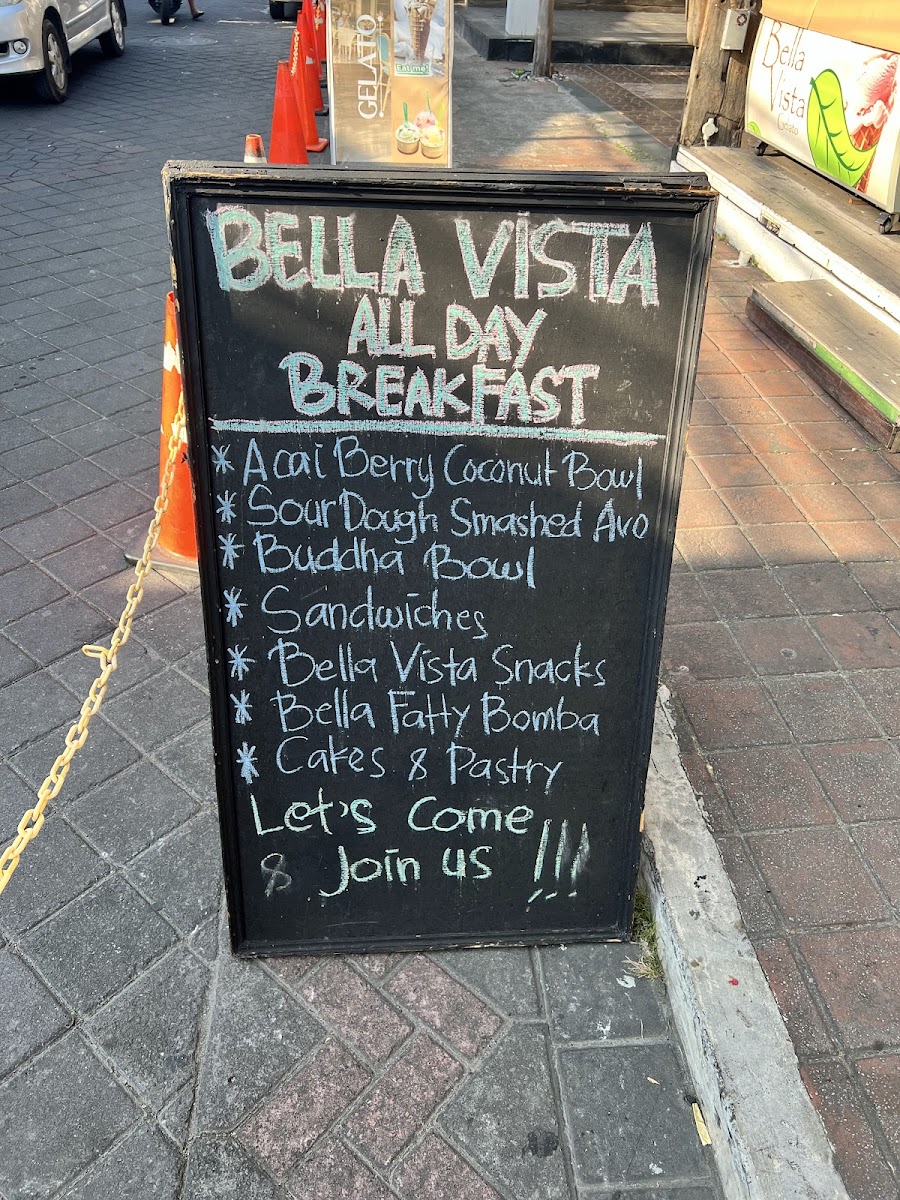 GELATO
Eat me!
Bella
Vista
Gelato
BELLA VISTA
ALL DAY
BREAKFAST
* Acai Berry Coconut Bowl
* SourDough Smashed Avo
* Buddha Bowl
* Sandwiches
* Bella Vista Snacks
* Bella Fatty Bomba
* Cakes & Pastry
Let's Come
& Join us !!!